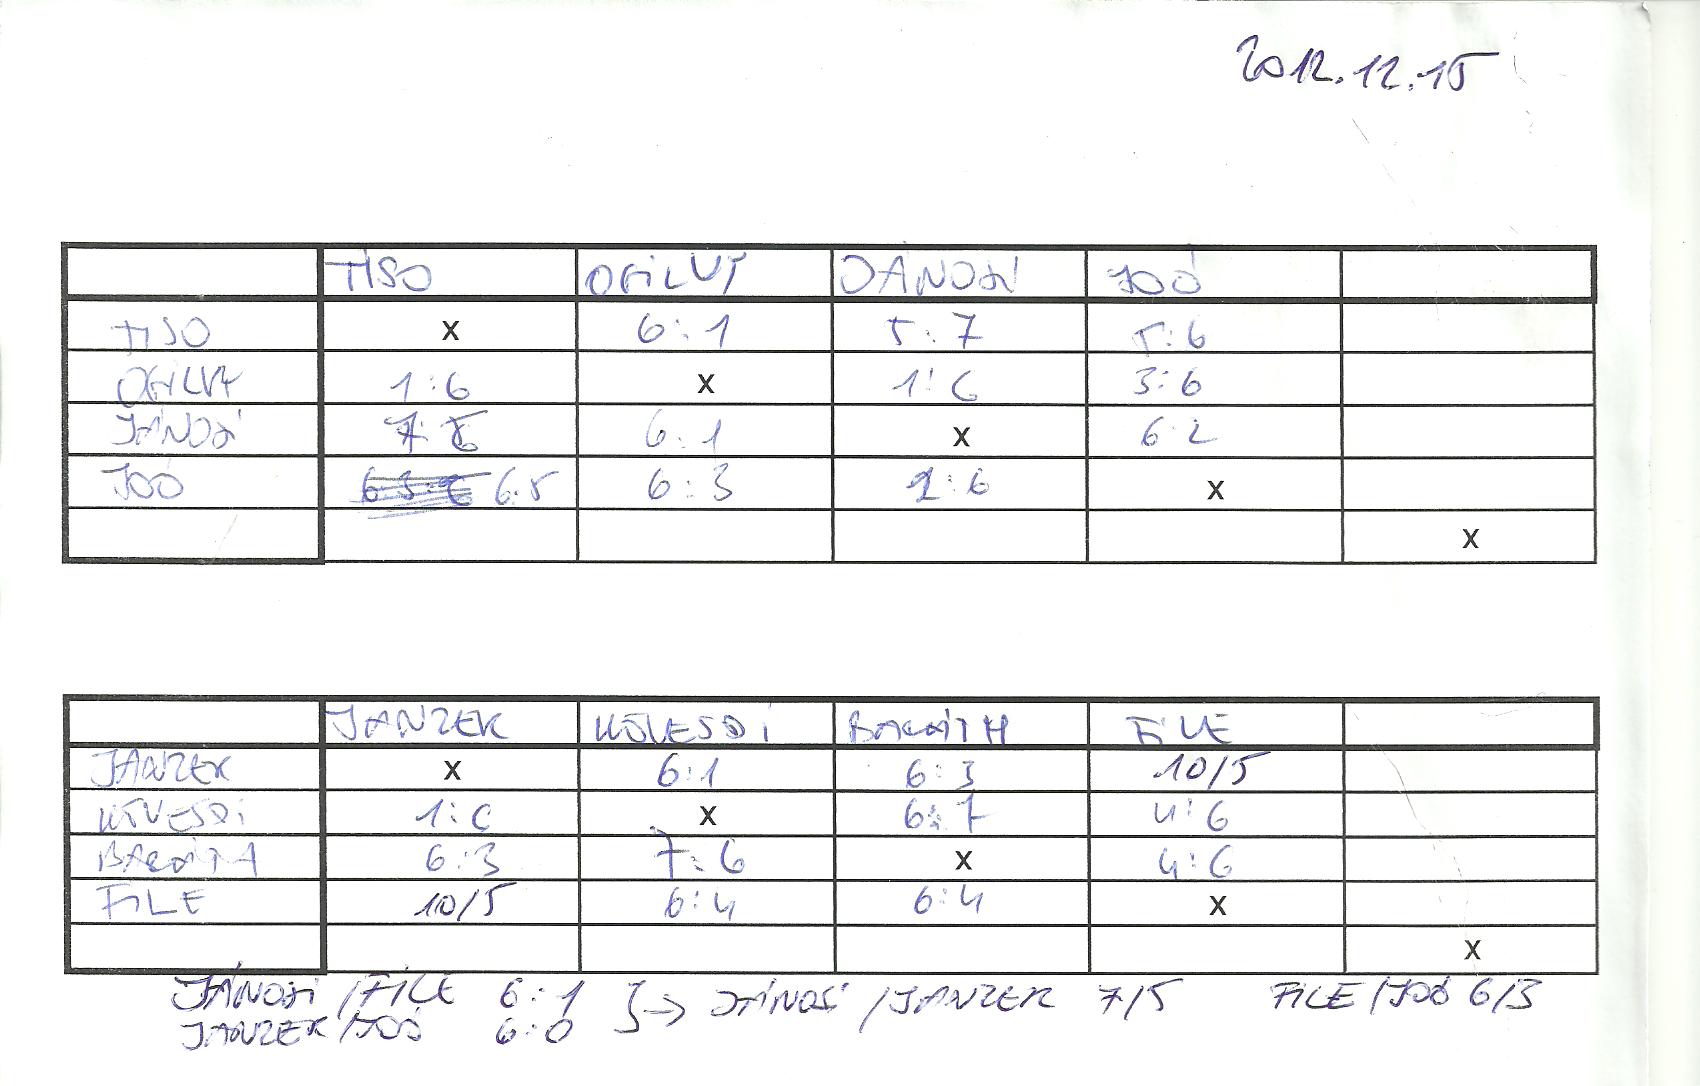 2012.12.15
TISO OGILVY JÁNOSI JOÓ
TISO x 6:1 5:7 5:6
OGILVY 1:6 x 1:6 3:6
JÁNOSI 7:5 6:1 x 6:2
JOÓ 6:5 6:3 2:6 x
x
JANZEK KÖVESDI BARÁTH FILE
JANZEK x 6:1 6:3 10/5
KÖVESDI 1:6 x 6:7 4:6
BARÁTH 6:3 7:6 x 4:6
FILE 10/5 6:4 6:4 x
x
JÁNOSI/FILE 6:1 }→ JÁNOSI/JANZEK 7/5 FILE/JOÓ 6/3
JANZEK/JOÓ 6:0